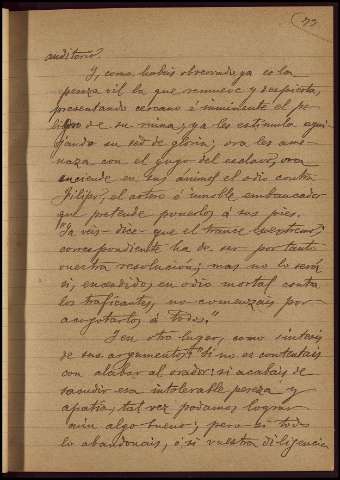 77
auditorio?
Y, como habéis observado ya es la
pereza vil la que remueve y despierta,
presentando cercano é inminente el pe-
ligro de su ruina, ya les estimula agui-
joneando su sed de gloria; ora les ame-
naza con el yugo del esclavo, ora
enciende en sus ánimos el odio contra
Filipo, el artero é innoble embaucador
que pretende ponerlos á sus pies.
"Ya veis - dice - que el trance es extremo;
correspondiente ha de ser por tanto
vuestra resolución; mas no lo será
si, encendidos en odio mortal contra
los traficantes, no comenzais por
acogotarlos á todos."
Y en otro lugar, como síntesis
de sus argumentos: "Si no os contentais
con alabar al orador: si acabais de
sacudir esa intolerable pereza y
apatía, tal vez podamos lograr
aún algo bueno; pero si todo
lo abandonais, ó si vuestra diligencia